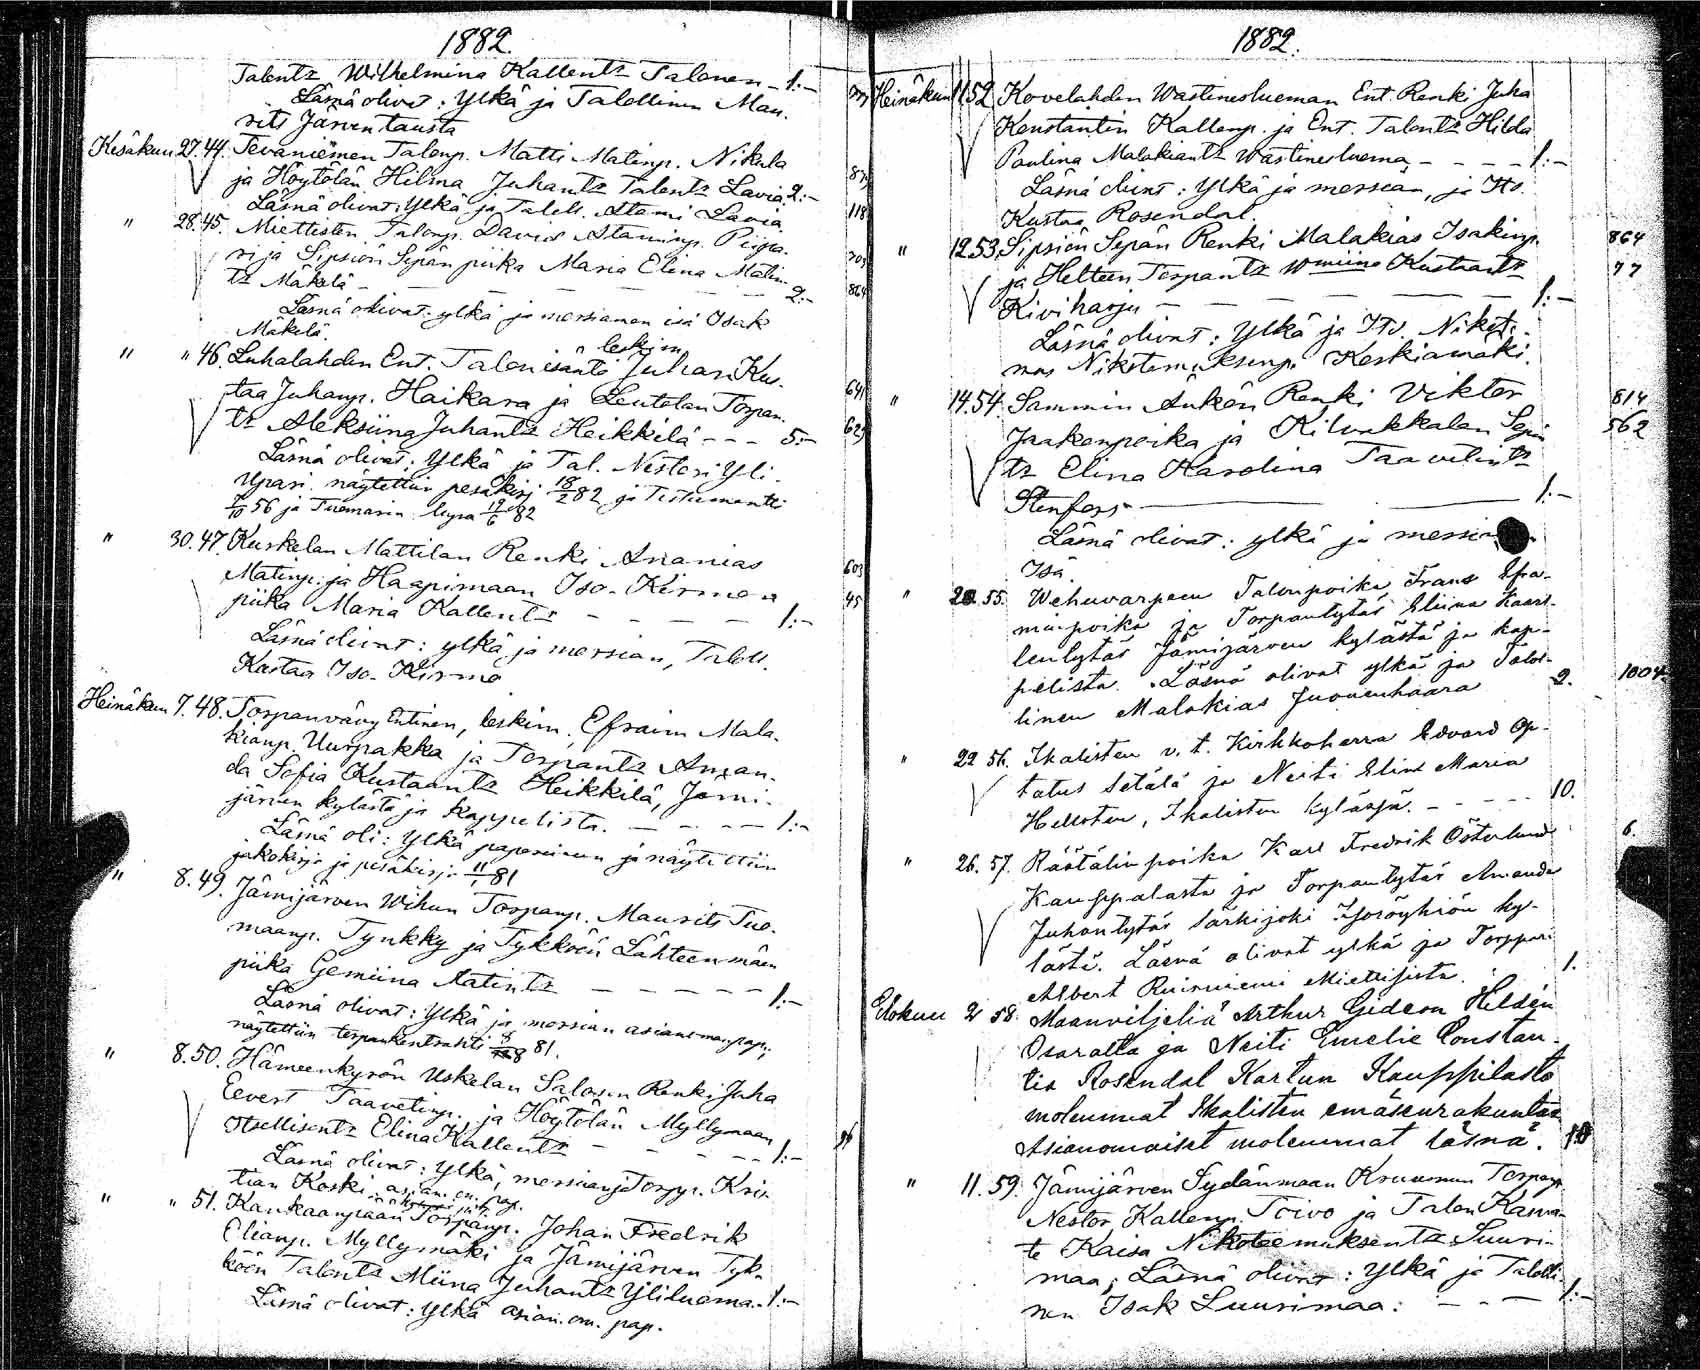 1882.
Talentz Wilhelmina Kallentz Talonen - 1:-
Läsnä olivat: Ylkä ja Talollinen Mau-
rits Järventausta
Kesäkuu 27. 44. Tevaniemen Talonp. Matti Matinp. Nikula
ja Höytölän Hilma Juhantz Talentz Lavia. 2:-
Läsnä olivat: Ylkä ja Taloll. Atami Lavia. 118
" 28. 45. Miettisten Talonp. David Ataminp. Piipa-
ri ja Sipsiön Sepän piika Maria Elina Matin-
tz Mäkelä - - - - - 2:- 864
Läsnä olivat: ylkä ja morsiamen isä Isak
Mäkelä.
leskim.
" " 46. Luhalahden Ent. Talon isäntä Juhan Kus-
taa Juhanp. Haikara ja Leutolan Torpan- 641
tz Aleksiina Juhantz Heikkilä - - - 5:- 629
Läsnä olivat: Ylkä ja Tal. Nestori Yli-
näytettiin pesäkirj 18/2 82 ja Testumentti
56 ja Tuomarin lupa 82
" 30. 47. Kuskelan Mattilan Renki Ananias 603
Matinp. ja Haapimaan Iso-Kirmon 45
piika Maria Kallentz - - - - 1:-
Läsnä olivat: ylkä ja morsian, Taloll.
Kustaa Iso-Kirmo
Heinäkuu 7. 48. Torpanvävy Entinen, leskim. Efraim Mala-
kianp. Uurpakka ja Torpantz Aman-
da Sofia Kustaantz Heikkilä, Jämi-
järven kylästä ja kappelista. - - - 1:-
Läsnä oli: Ylkä papereineen ja näytettiin
jakokirja ja pesäkirja 11/1 81
" 8. 49. Jämijärven Wihun Torpanp. Maurits Tuo-
maanp. Tynkky ja Tykköön Lähteenmäen
piika Gemiina Aatintz - - - - - 1:-
Läsnä olivat: Ylkä ja morsian asianom. pap.;
näytettiin torpankontrahti 81.
" 8. 50. Hämeenkyrön Uskelan Salosen Renki Juha
Eevert Taavetinp. ja Höytölän Myllymaan
Itsellisentz Elina Kallentz - - - - 1:-
Läsnä olivat: Ylkä, morsian ja Torpp. Kris-
tian Koski. asian. om. pap.
" " 51. Kankaanpään Torpanp. Johan Fredrik
Elianp. Myllymäki ja Jämijärven Tyk-
köön Talontz Miina Juhantz Yliluoma. - 1:-
Läsnä olivat: Ylkä asian. om. pap.
1882.
Heinäkuu 11. 52. Kovelahden Wastinesluoman Ent. Renki Juha
Konstantin Kallenp. ja Ent. Talontz Hilda
Paulina Malakiantz Wastinesluoma - - - - 1:-
Läsnä olivat: Ylkä ja morsian, ja Its.
Kustaa Rosendal.
" 12. 53. Sipsiön Sepän Renki Malakias Isakinp. 864
ja Helteen Torpantz Wmiina Kustaantz 77
Kiviharju - - - - - 1:-
Läsnä olivat: Ylkä ja Its. Nikote-
mus Nikotemuksenp. Keskiamäki.
" 14. 54. Sammin Änkön Renki Viktor 814
Jaakonpoika ja Kilvakkalan Sepän 562
tz Elina Karolina Taavetintz
Stenfors - - - 1:-
Läsnä olivat: ylkä ja morsiam
Isä.
" 20. 55. Wehuvarpeen Talonpoika Frans Efra-
minpoika ja Torpantytär Eliina Kaarl-
lentytär Jämijärven kylästä ja kap-
pelista. Läsnä olivat ylkä ja Talol- 2. 1004.
linen Malakias Juonenhaara
" 22 56. Ikalisten v. t. Kirkkoherra Edvard Op-
tatus Setälä ja Neiti Elina Maria
Hellsten, Ikalisten kylässä. - - - - 10.
" 26. 57. Räätälinpoika Karl Fredrik Österlund 6.
Kauppalasta ja Torpantytär Amanda
Juhontytär Särkijoki Isoröyhiön ky-
lästä. Läsnä olivat ylkä ja Torppari
Albert Ruisniemi Miettisistä. 1.
Elokuu 2 58. Maanviljeliä Arthur Gideon Hildén
Osaralta ja Neiti Emelie Constan-
tia Rosendal Kartun Kauppilasta
molemmat Ikalisten emäseurakuntaa
Asianomaiset molemmat läsnä. 10
" 11. 59. Jämijärven Sydänmaan Kruunun Torpanp.
Nestor Kallenp. Toivo ja Talon Kasva-
te Kaisa Nikoteemuksentz Suuri-
maa; Läsnä olivat: Ylkä ja Talolli-
nen Isak Luurimaa: - - - 1:-